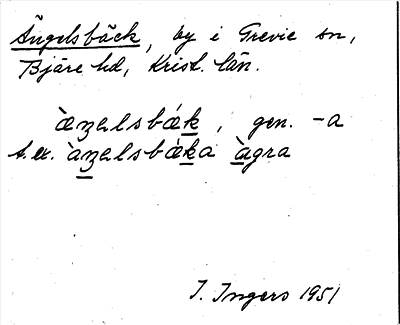 Ängelsbäck, by i Grevie sn,
Bjäre hd, Krist. län.
àʒelsbák, gen. -a
t.ex. àʒelsbáka àgra
I. Ingers 1951